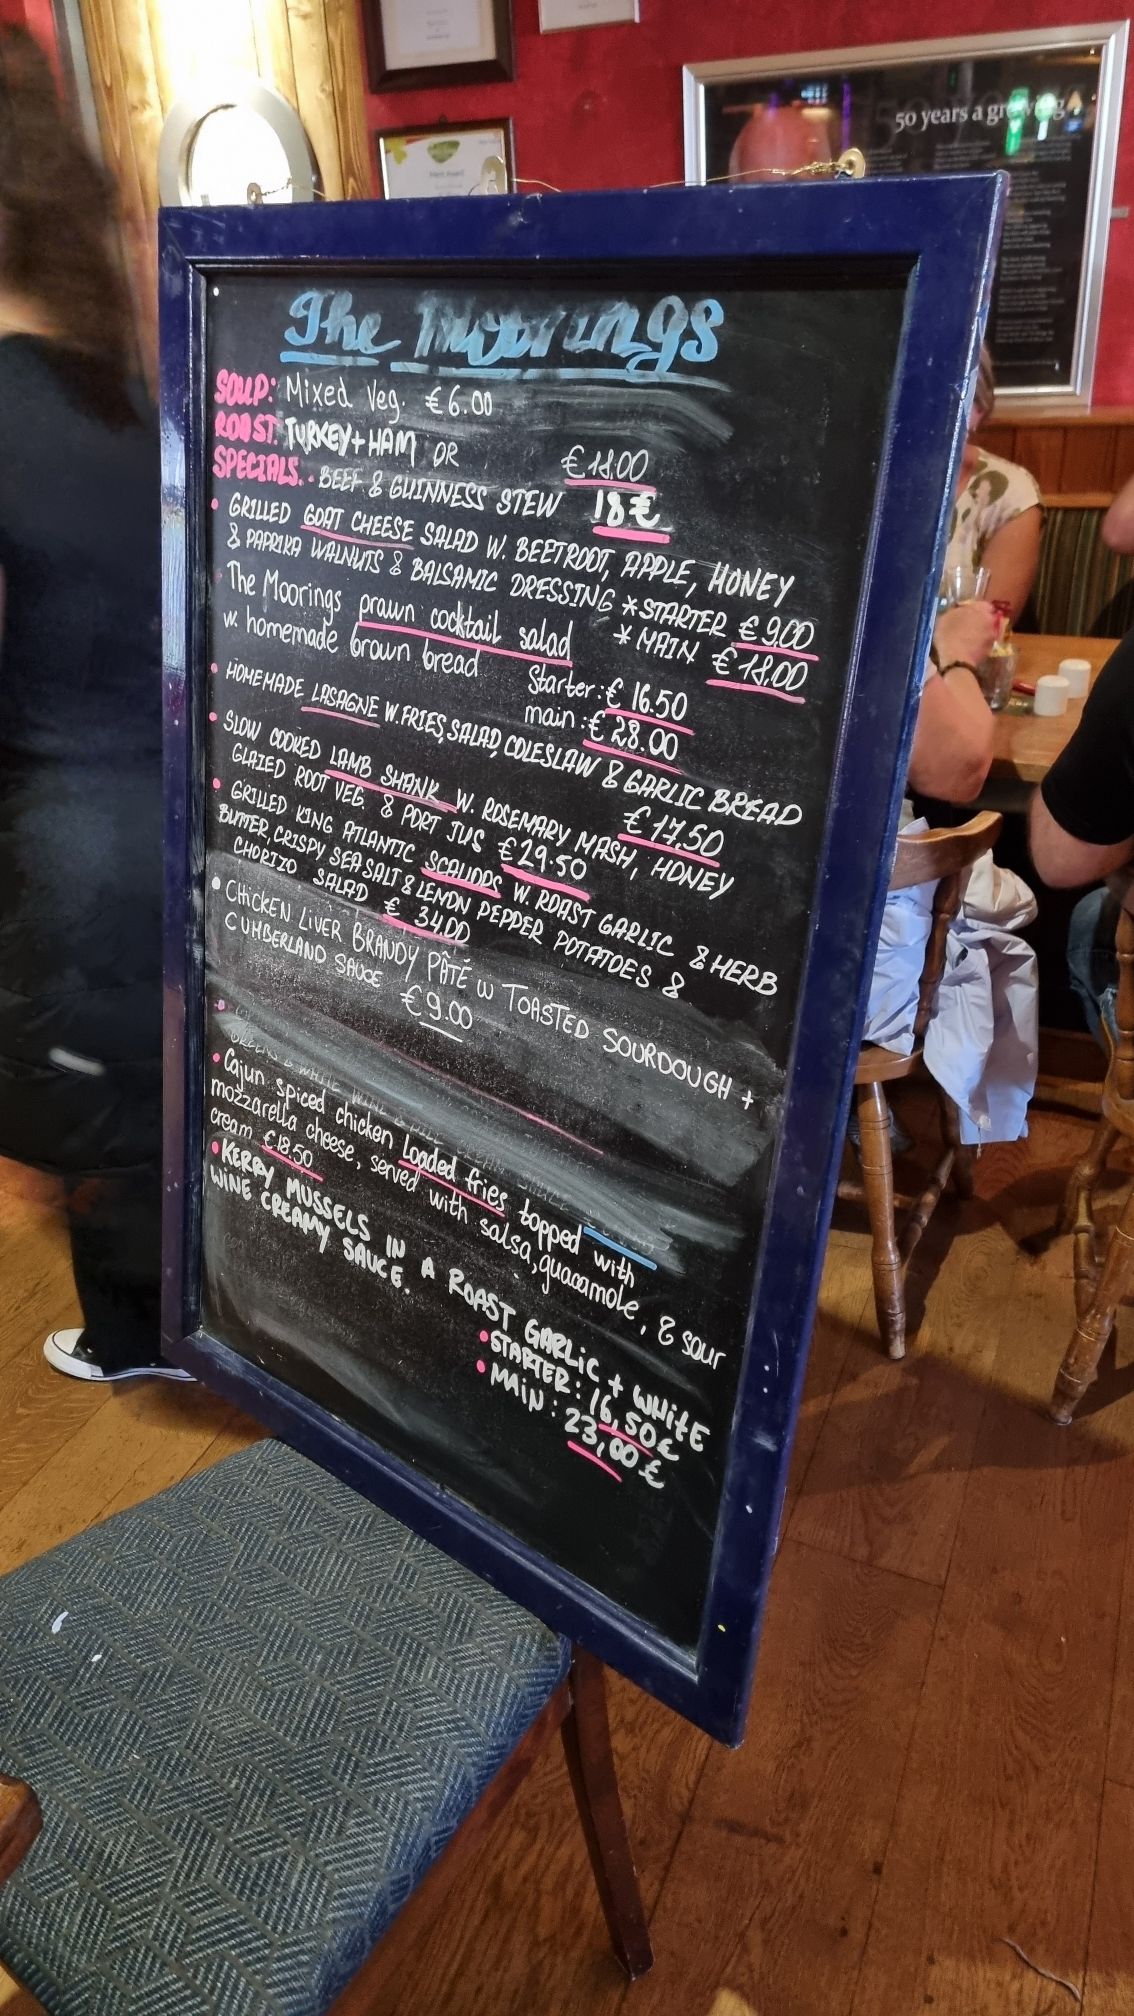 50 years a growing
The Moorings
SOUP: Mixed Veg. €6.00
ROAST: TURKEY+HAM OR €18.00
SPECIALS.. BEEF & GUINNESS STEW 18€
• GRILLED GOAT CHEESE SALAD W. BEETROOT, APPLE, HONEY
& PAPRIKA WALNUTS & BALSAMIC DRESSING *STARTER €9.00
* MAIN €18.00
• The Moorings prawn cocktail salad
w. homemade brown bread Starter: € 16.50
main: € 28.00
• HOMEMADE LASAGNE W. FRIES, SALAD, COLESLAW & GARLIC BREAD
€17,50
• SLOW COOKED LAMB SHANK W. ROSEMARY MASH, HONEY
GLAZED ROOT VEG & PORT JUS €29.50
• GRILLED KING ATLANTIC SCALLOPS W. ROAST GARLIC & HERB
BUTTER, CRISPY SEA SALT & LEMON PEPPER POTATOES &
CHORIZO SALAD € 34.00
• CHICKEN LIVER BRANDY PÂTÉ W TOASTED SOURDOUGH +
CUMBERLAND SAUCE €9.00
• Cajun spiced chicken Loaded fries topped with
mozzarella cheese, served with salsa, guacamole, & sour
cream €18.50
• KERRY MUSSELS IN A ROAST GARLIC + WHITE
WINE CREAMY SAUCE.
• STARTER: 16,50€
• MAIN: 23,00€